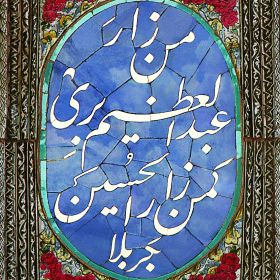 من زارَ
عبدالعظیم بری
کمن زار الحسین
بکربلا